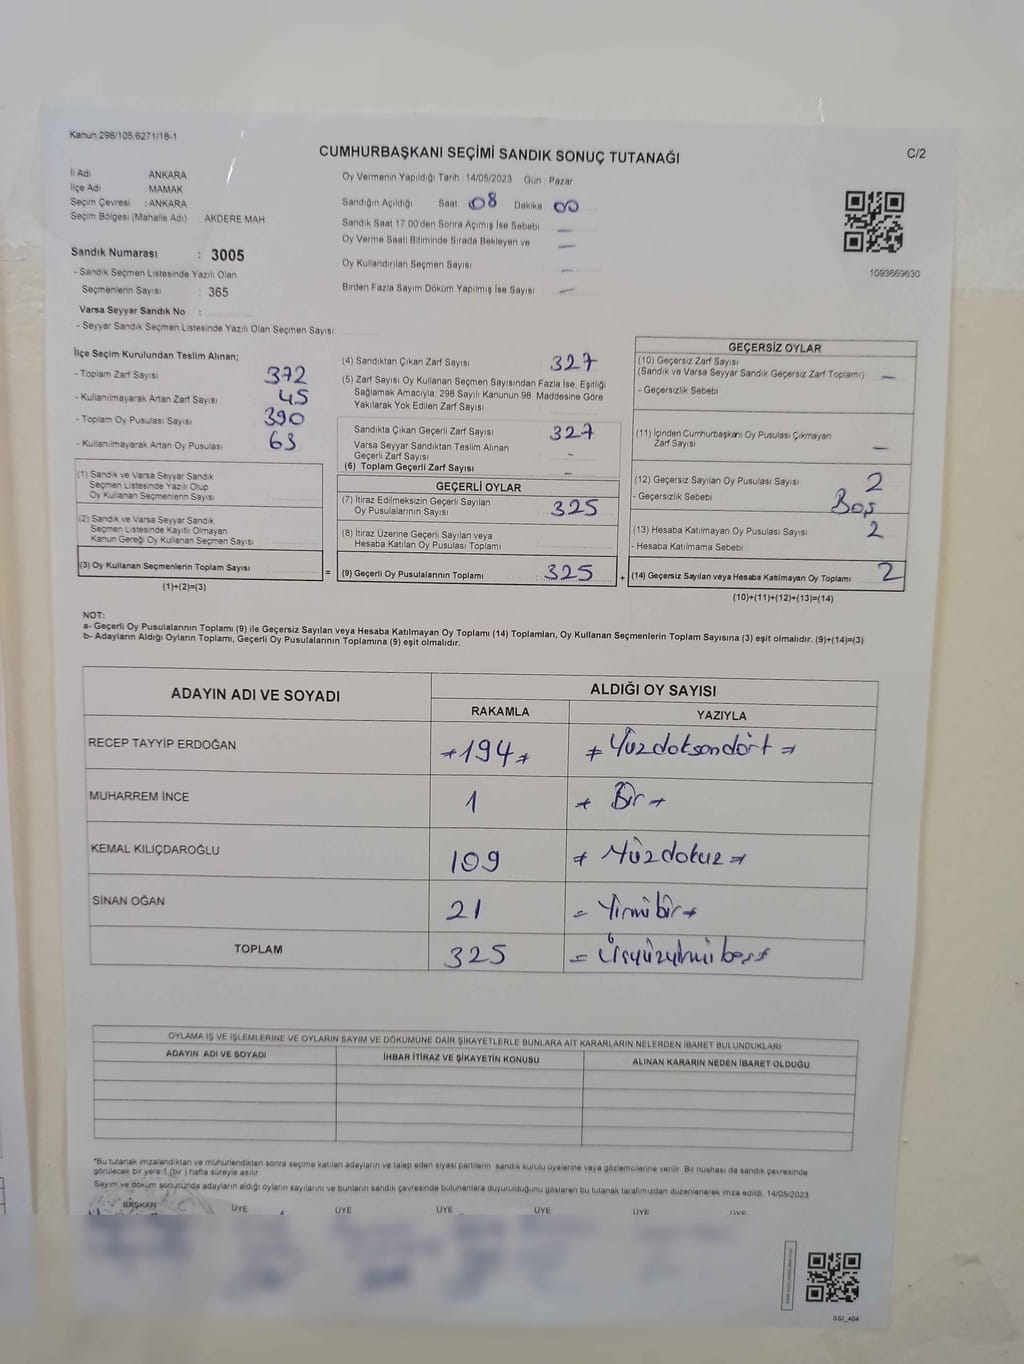 Kanun 298/105 6271/18-1
CUMHURBAŞKANI SEÇİMİ SANDIK SONUÇ TUTANAĞI
C/2
İl Adı ANKARA
İlçe Adı MAMAK
Seçim Çevresi : ANKARA
Seçim Bölgesi (Mahalle Adı) : AKDERE MAH
Oy Vermenin Yapıldığı Tarih 14/05/2023 Gün : Pazar
Sandığın Açıldığı Saat 08 Dakika 00
Sandık Saat 17.00'den Sonra Açımış İse Sebebi —
Oy Verme Saati Bitiminde Sırada Bekleyen ve —
Oy Kullandırılan Seçmen Sayısı —
Birden Fazla Sayım Döküm Yapılmış İse Sayısı —
1093669630
Sandık Numarası : 3005
- Sandık Seçmen Listesinde Yazılı Olan
Seçmenlerin Sayısı : 365
Varsa Seyyar Sandık No :
- Seyyar Sandık Seçmen Listesinde Yazılı Olan Seçmen Sayısı
İlçe Seçim Kurulundan Teslim Alınan;
- Toplam Zarf Sayısı 372
- Kullanılmayarak Artan Zarf Sayısı 45
- Toplam Oy Pusulası Sayısı 390
- Kullanılmayarak Artan Oy Pusulası 63
(1) Sandık ve Varsa Seyyar Sandık
Seçmen Listesinde Yazılı Olup
Oy Kullanan Seçmenlerin Sayısı
(2) Sandık ve Varsa Seyyar Sandık
Seçmen Listesinde Kayıtlı Olmayan
Kanun Gereği Oy Kullanan Seçmen Sayısı :
(3) Oy Kullanan Seçmenlerin Toplam Sayısı =
(1)+(2)=(3)
(4) Sandıktan Çıkan Zarf Sayısı 327
(5) Zarf Sayısı Oy Kullanan Seçmen Sayısından Fazla İse, Eşitliği
Sağlamak Amacıyla, 298 Sayılı Kanunun 98. Maddesine Göre
Yakılarak Yok Edilen Zarf Sayısı
Sandıkta Çıkan Geçerli Zarf Sayısı 327
Varsa Seyyar Sandıktan Teslim Alınan
Geçerli Zarf Sayısı -
(6) Toplam Geçerli Zarf Sayısı -
GEÇERLİ OYLAR
(7) İtiraz Edilmeksizin Geçerli Sayılan
Oy Pusulalarının Sayısı 325
(8) İtiraz Üzerine Geçerli Sayılan veya
Hesaba Katılan Oy Pusulası Toplamı
(9) Geçerli Oy Pusulalarının Toplamı 325 +
GEÇERSİZ OYLAR
(10) Geçersiz Zarf Sayısı
(Sandık ve Varsa Seyyar Sandık Geçersiz Zarf Toplamı) —
- Geçersizlik Sebebi
(11) İçinden Cumhurbaşkanı Oy Pusulası Çıkmayan
Zarf Sayısı —
(12) Geçersiz Sayılan Oy Pusulası Sayısı 2
- Geçersizlik Sebebi Boş
(13) Hesaba Katılmayan Oy Pusulası Sayısı 2
- Hesaba Katılmama Sebebi
(14) Geçersiz Sayılan veya Hesaba Katılmayan Oy Toplamı 2
(10)+(11)+(12)+(13)=(14)
NOT:
a- Geçerli Oy Pusulalarının Toplamı (9) ile Geçersiz Sayılan veya Hesaba Katılmayan Oy Toplamı (14) Toplamları, Oy Kullanan Seçmenlerin Toplam Sayısına (3) eşit olmalıdır. (9)+(14)=(3)
b- Adayların Aldığı Oyların Toplamı, Geçerli Oy Pusulalarının Toplamına (9) eşit olmalıdır.
ADAYIN ADI VE SOYADI ALDIĞI OY SAYISI
RAKAMLA YAZIYLA
RECEP TAYYİP ERDOĞAN 194 Yüzdoksandört
MUHARREM İNCE 1 Bir
KEMAL KILIÇDAROĞLU 109 Yüzdokuz
SİNAN OĞAN 21 Yirmibir
TOPLAM 325 Üçyüzyirmibeş
OYLAMA İŞ VE İŞLEMLERİNE VE OYLARIN SAYIM VE DÖKÜMÜNE DAİR ŞİKAYETLERLE BUNLARA AİT KARARLARIN NELERDEN İBARET BULUNDUKLARI
ADAYIN ADI VE SOYADI İHBAR İTİRAZ VE ŞİKAYETİN KONUSU ALINAN KARARIN NEDEN İBARET OLDUĞU
*Bu tutanak imzalandıktan ve mühürlendikten sonra seçime katılan adayların ve talep eden siyasi partilerin sandık kurulu üyelerine veya gözlemcilerine verilir. Bir nüshası da sandık çevresinde
görülecek bir yere 1 (bir ) hafta süreyle asılır.
Sayım ve döküm sonucunda adayların aldığı oyların sayılarını ve bunların sandık çevresinde bulunanlara duyurulduğunu gösteren bu tutanak tarafımızdan düzenlenerek imza edildi. 14/05/2023
BAŞKAN ÜYE ÜYE ÜYE ÜYE ÜYE ÜYE